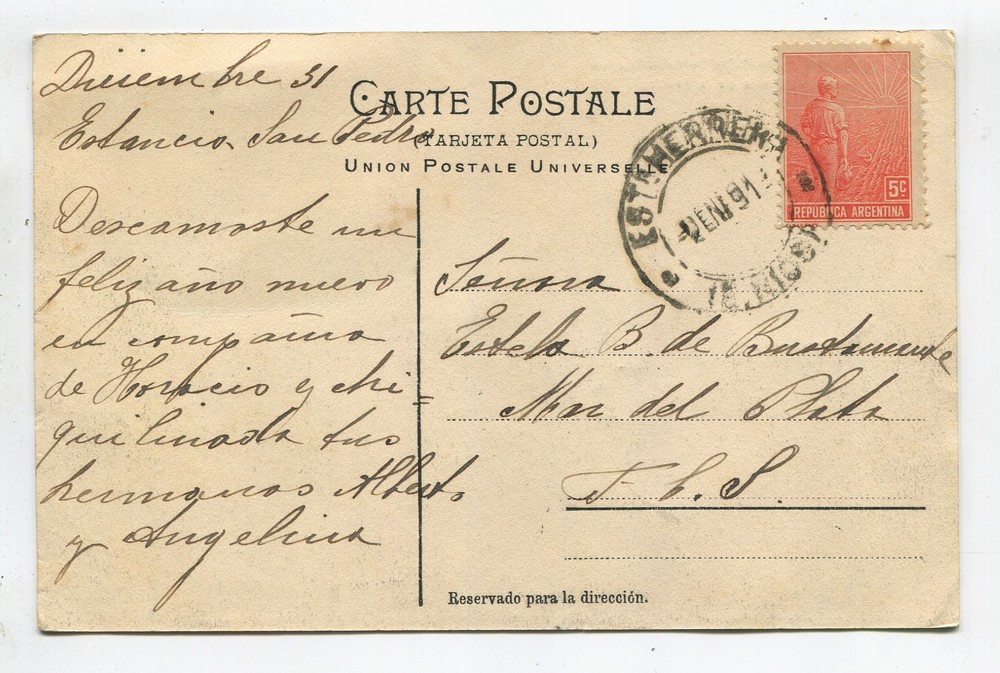 Diciembre 31
Estancia San Pedro
CARTE POSTALE
(TARJETA POSTAL)
UNION POSTALE UNIVERSELLE
5c
REPÚBLICA ARGENTINA
2 ENE 191
Descamoste un
feliz año nuevo
en compañia
de Horacio y chi=
quilinada tus
hermanos Alberto
y Angelina
Señora
Estela B. de Bustamante
Mar del Plata
F. C. S.
Reservado para la dirección.